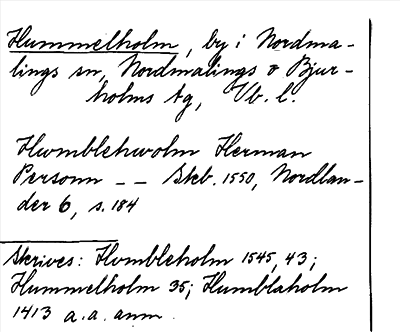 Hummelholm, by i Nordma-
lings sn, Nordmalings o Bjur-
holms tg, Vb. l.
Hwmblehwolm Herman
Personn _ _ Skeb. 1550, Nordlan-
der 6, s. 184
Skrives: Humbleholm 1545, 43;
Hummelholm 35; Humblaholm
1413 a.a. anm.